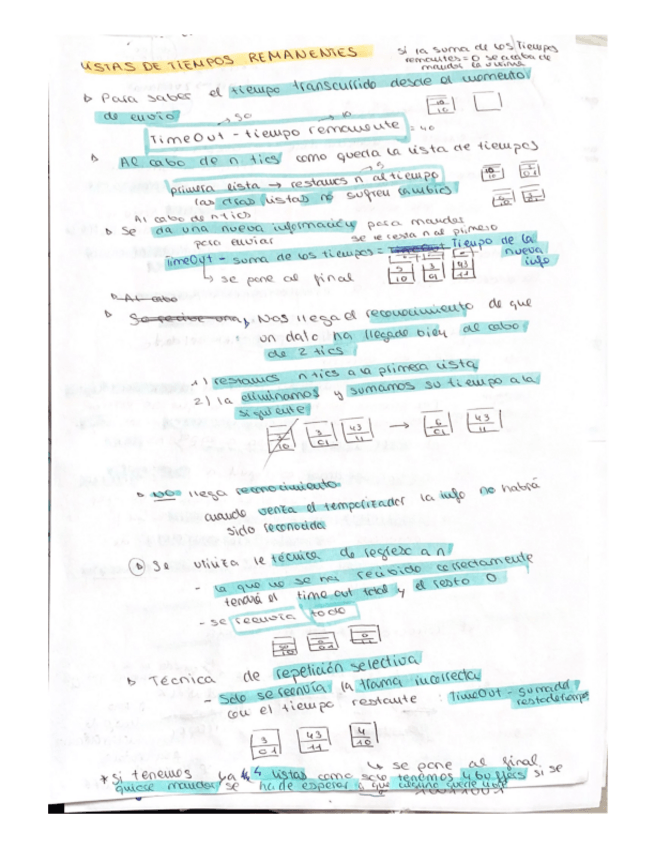 LISTAS DE TIEMPOS REMANENTES
si la suma de los tiempos
remanentes = 0 se acaba de
mandar la última
Para saber el tiempo transcurrido desde el momento
de envío
50 10
TimeOut - tiempo remanente = 40
Al cabo de n tics como queda la lista de tiempos
primera lista → restamos n al tiempo
las otras listas no sufren cambios
Al cabo de n tics
Se da una nueva información para mandar
para enviar se le resta n al primero
TimeOut - suma de los tiempos = Tiempo de la
nueva
info
↳ se pone al final
5 3 43
10 01 11
Al cabo
Se recibe una, Nos llega el reconocimiento de que
un dato ha llegado bien al cabo
de 2 tics
1) restamos n tics a la primera lista
2) la eliminamos y sumamos su tiempo a la
siguiente
3 3 43 → 6 43
10 01 11 01 11
NO llega reconocimiento.
cuando venza el temporizador la info no habrá
sido reconocida
Se utiliza la técnica de regreso a n
- la que no se ha recibido correctamente
tendrá el time out total y el resto 0
- se reenvía todo
50 0 0
10 01 11
Técnica de repetición selectiva
- solo se reenvía la trama incorrecta
con el tiempo restante : TimeOut - suma del
resto de tiempos
3 43 4
01 11 10
↳ se pone al final
* si tenemos ya 4 listas como solo tenemos 4 buffers si se
quiere mandar se ha de esperar a que alguno quede libre